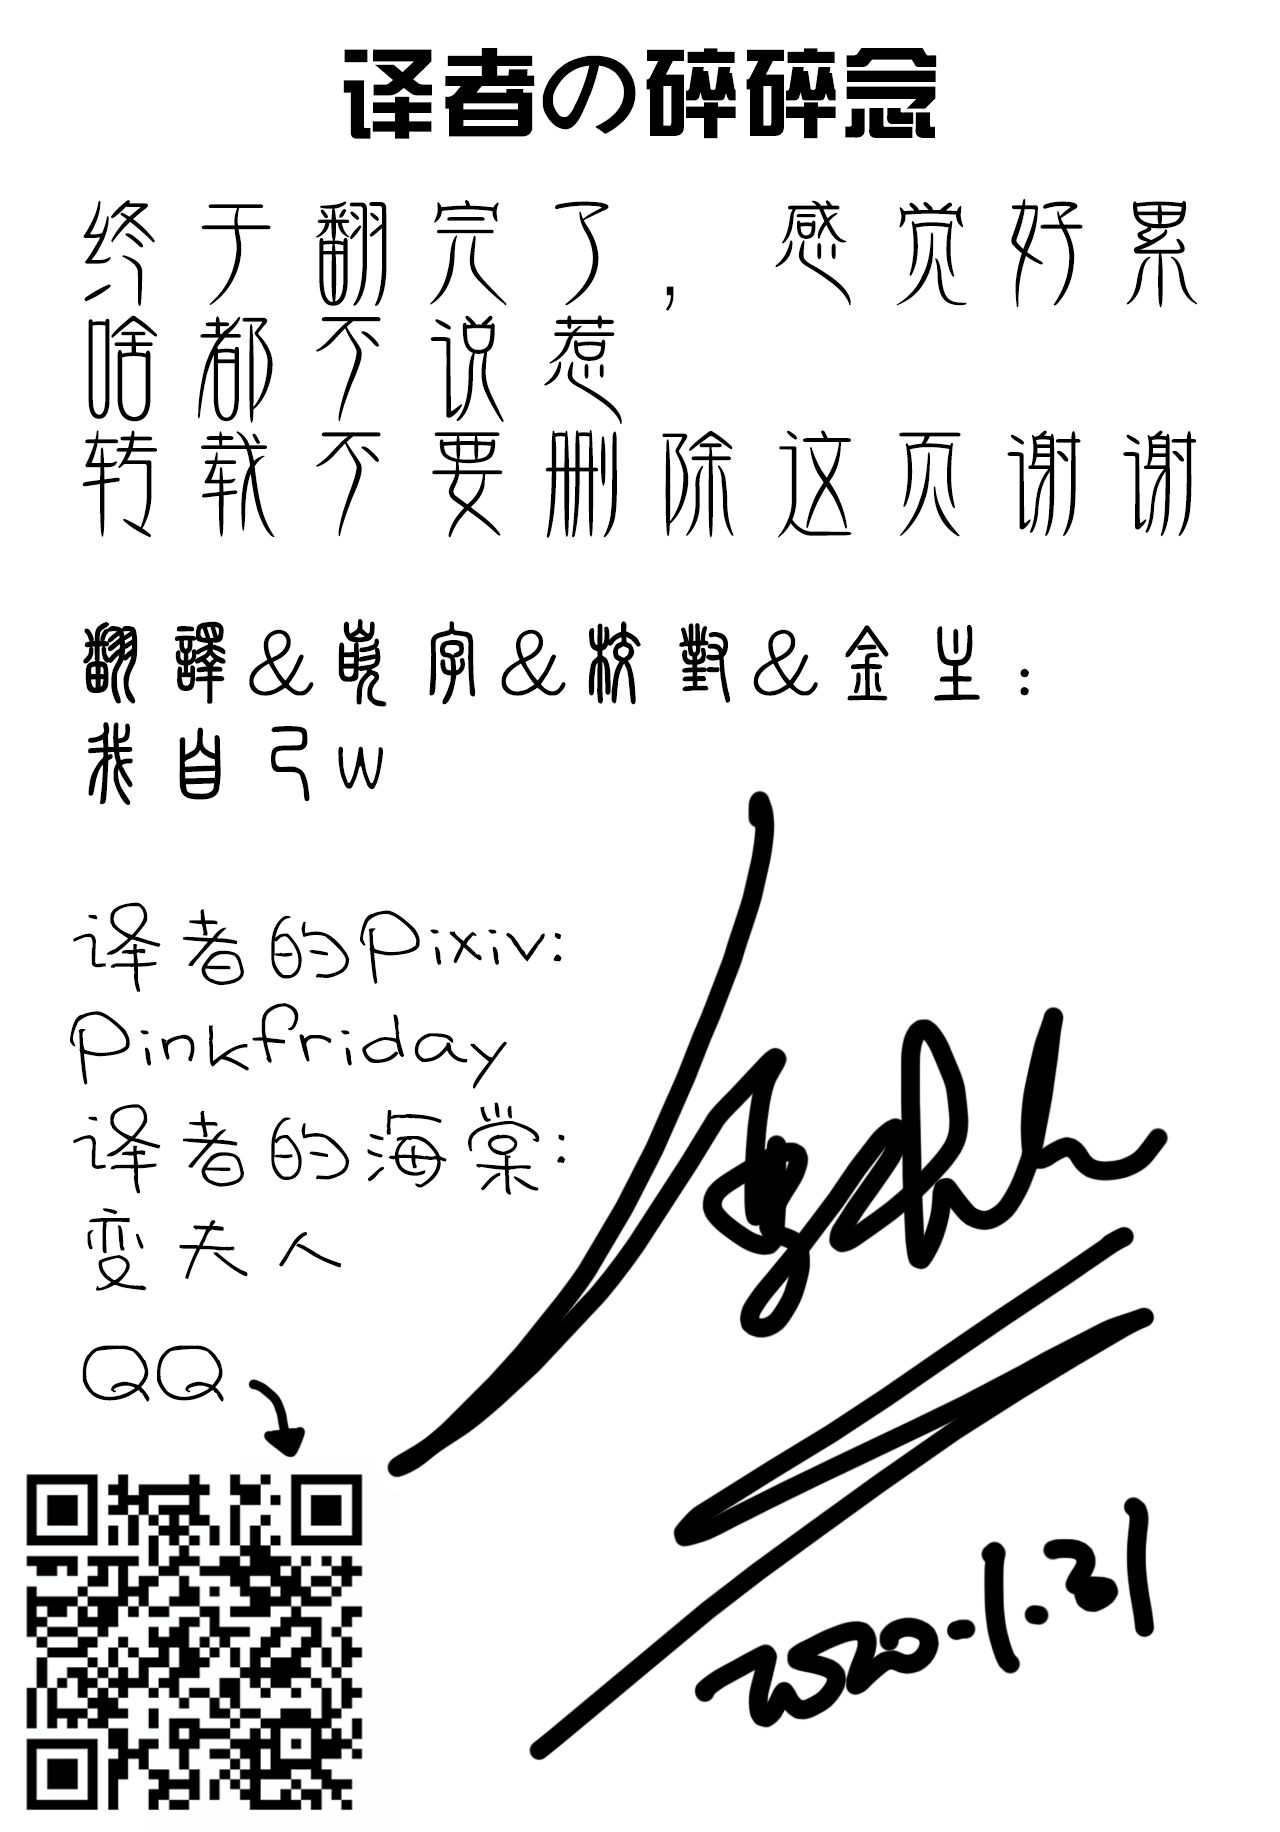 译者の碎碎念
终于翻完了，感觉好累
啥都不说惹
转载不要删除这页谢谢
翻譯&嵌字&校對&金主：
我自己w
译者的Pixiv:
Pinkfriday
译者的海棠:
变夫人
QQ
2020.1.31